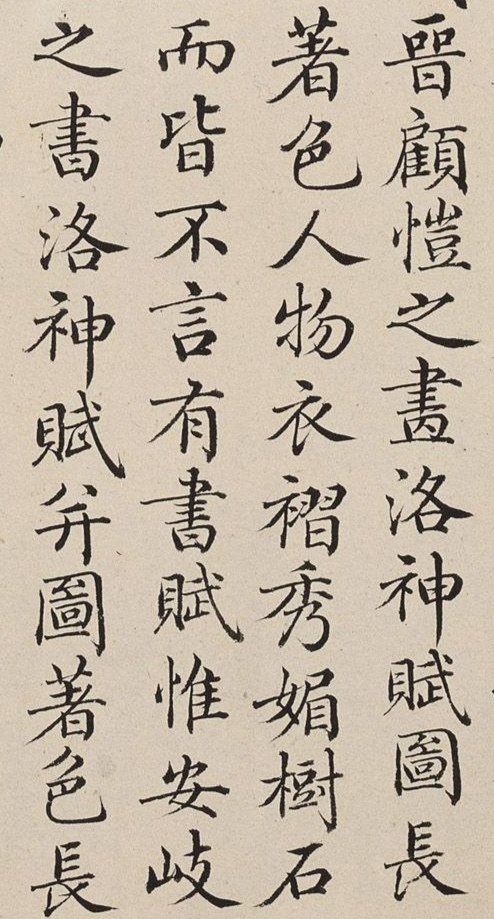 晉顧愷之畫洛神賦圖長
著色人物衣褶秀媚樹石
而皆不言有書賦惟安岐
之書洛神賦并圖著色長